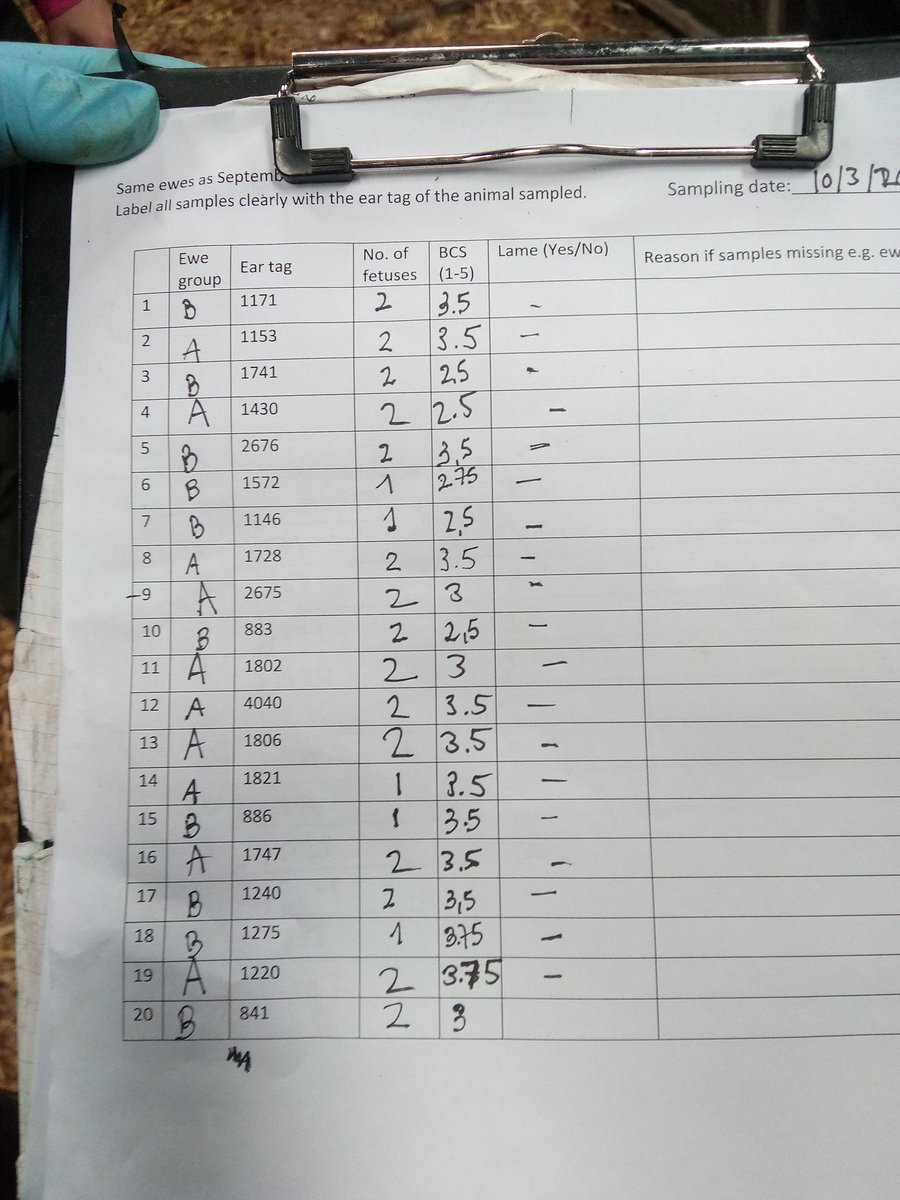 Same ewes as Septemb
Label all samples clearly with the ear tag of the animal sampled.
Sampling date: 10/3/20
Ewe group Ear tag No. of fetuses BCS (1-5) Lame (Yes/No) Reason if samples missing e.g. ew
1 B 1171 2 3.5 -
2 A 1153 2 3.5 -
3 B 1741 2 25 -
4 A 1430 2 2.5 -
5 B 2676 2 3,5 -
6 B 1572 1 275 -
7 B 1146 1 2,5 -
8 A 1728 2 3.5 -
-9 A 2675 2 3 -
10 B 883 2 2,5 -
11 A 1802 2 3 -
12 A 4040 2 3.5 -
13 A 1806 2 3.5 -
14 A 1821 1 3.5 -
15 B 886 1 3.5 -
16 A 1747 2 3.5 -
17 B 1240 2 3,5 -
18 B 1275 1 3.75 -
19 A 1220 2 3.75 -
20 B 841 2 3